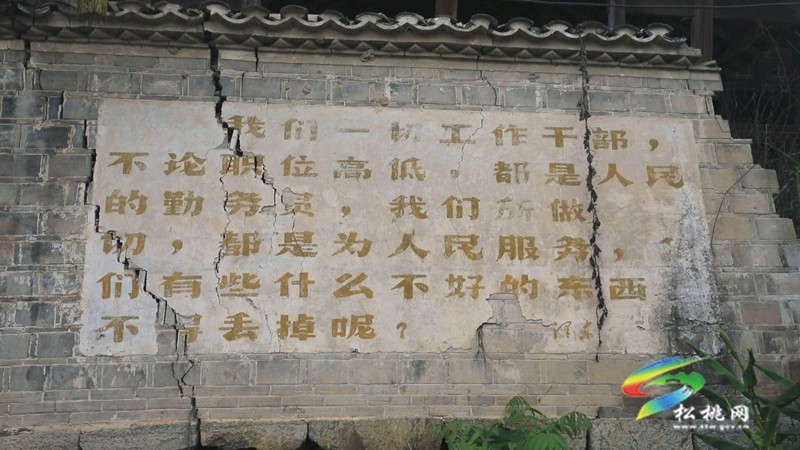 我们一切工作干部，
不论职位高低，都是人民
的勤务员，我们所做
切，都是为人民服务，
们有些什么不好的东西
不得丢掉呢？
松桃网
www.stw.gov.cn